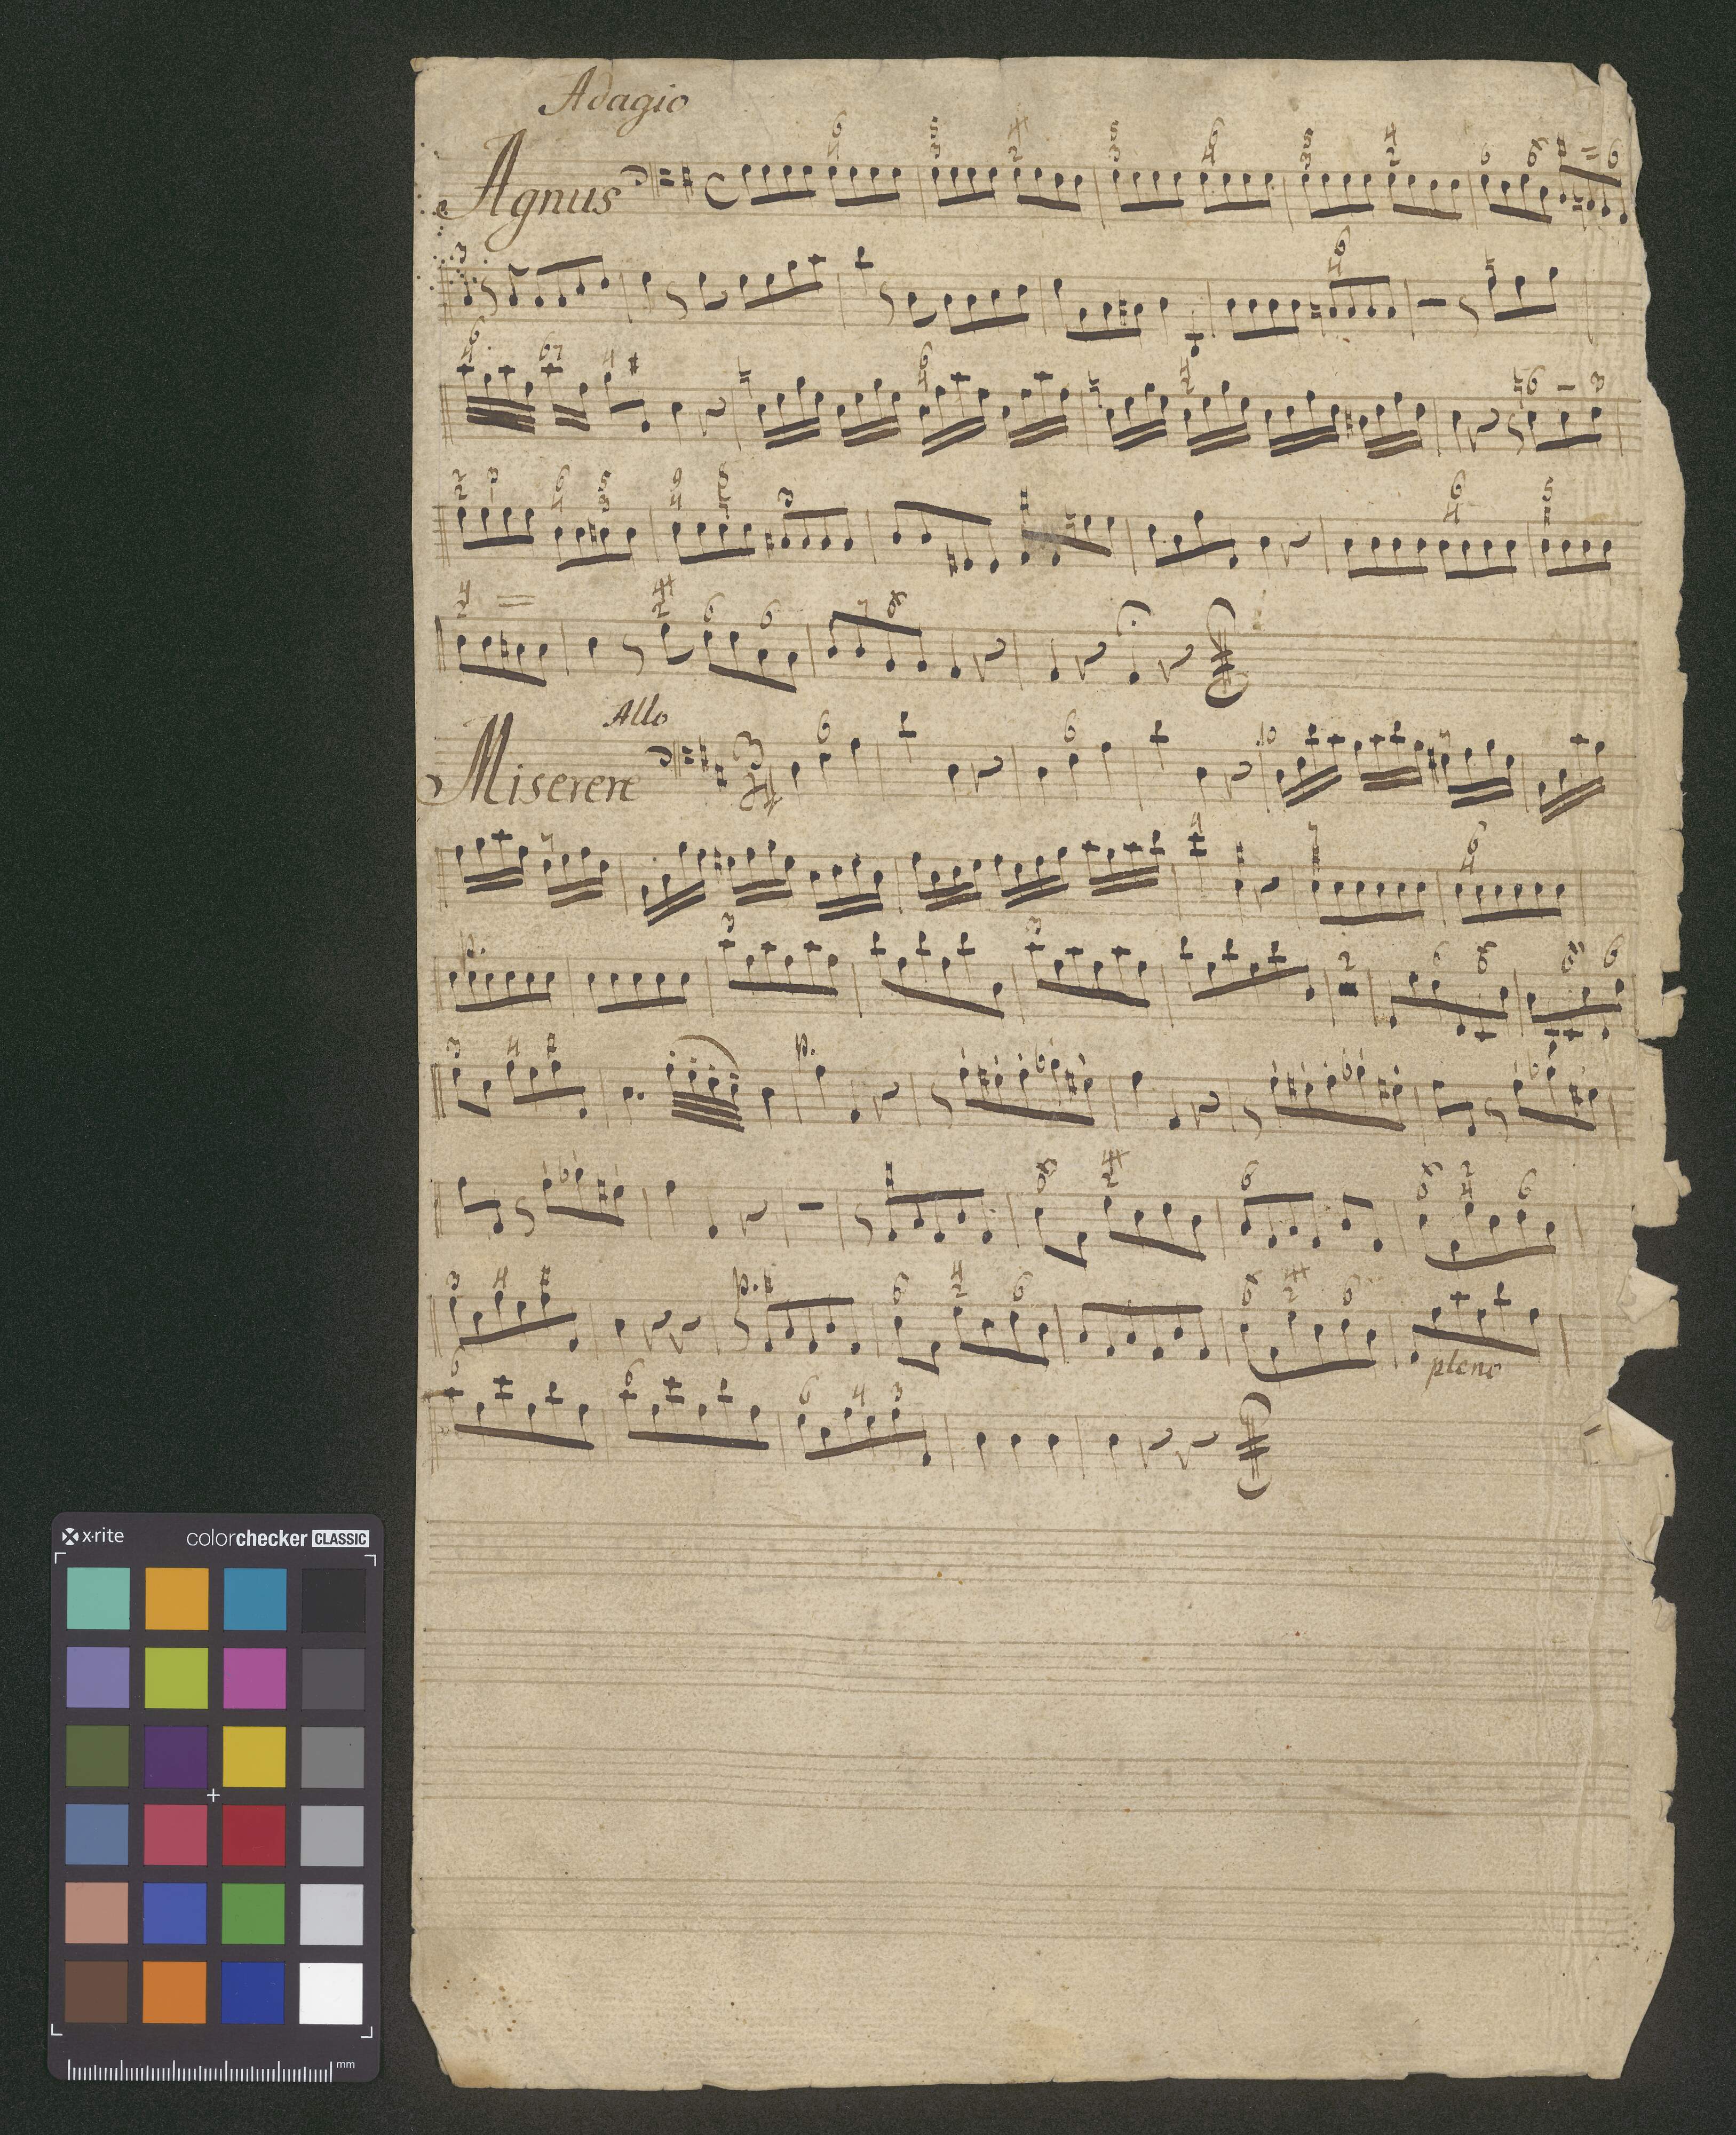 Adagio
Agnus
Allo
Miserere
p.
p.
p.
pleno
x·rite colorchecker CLASSIC
mm